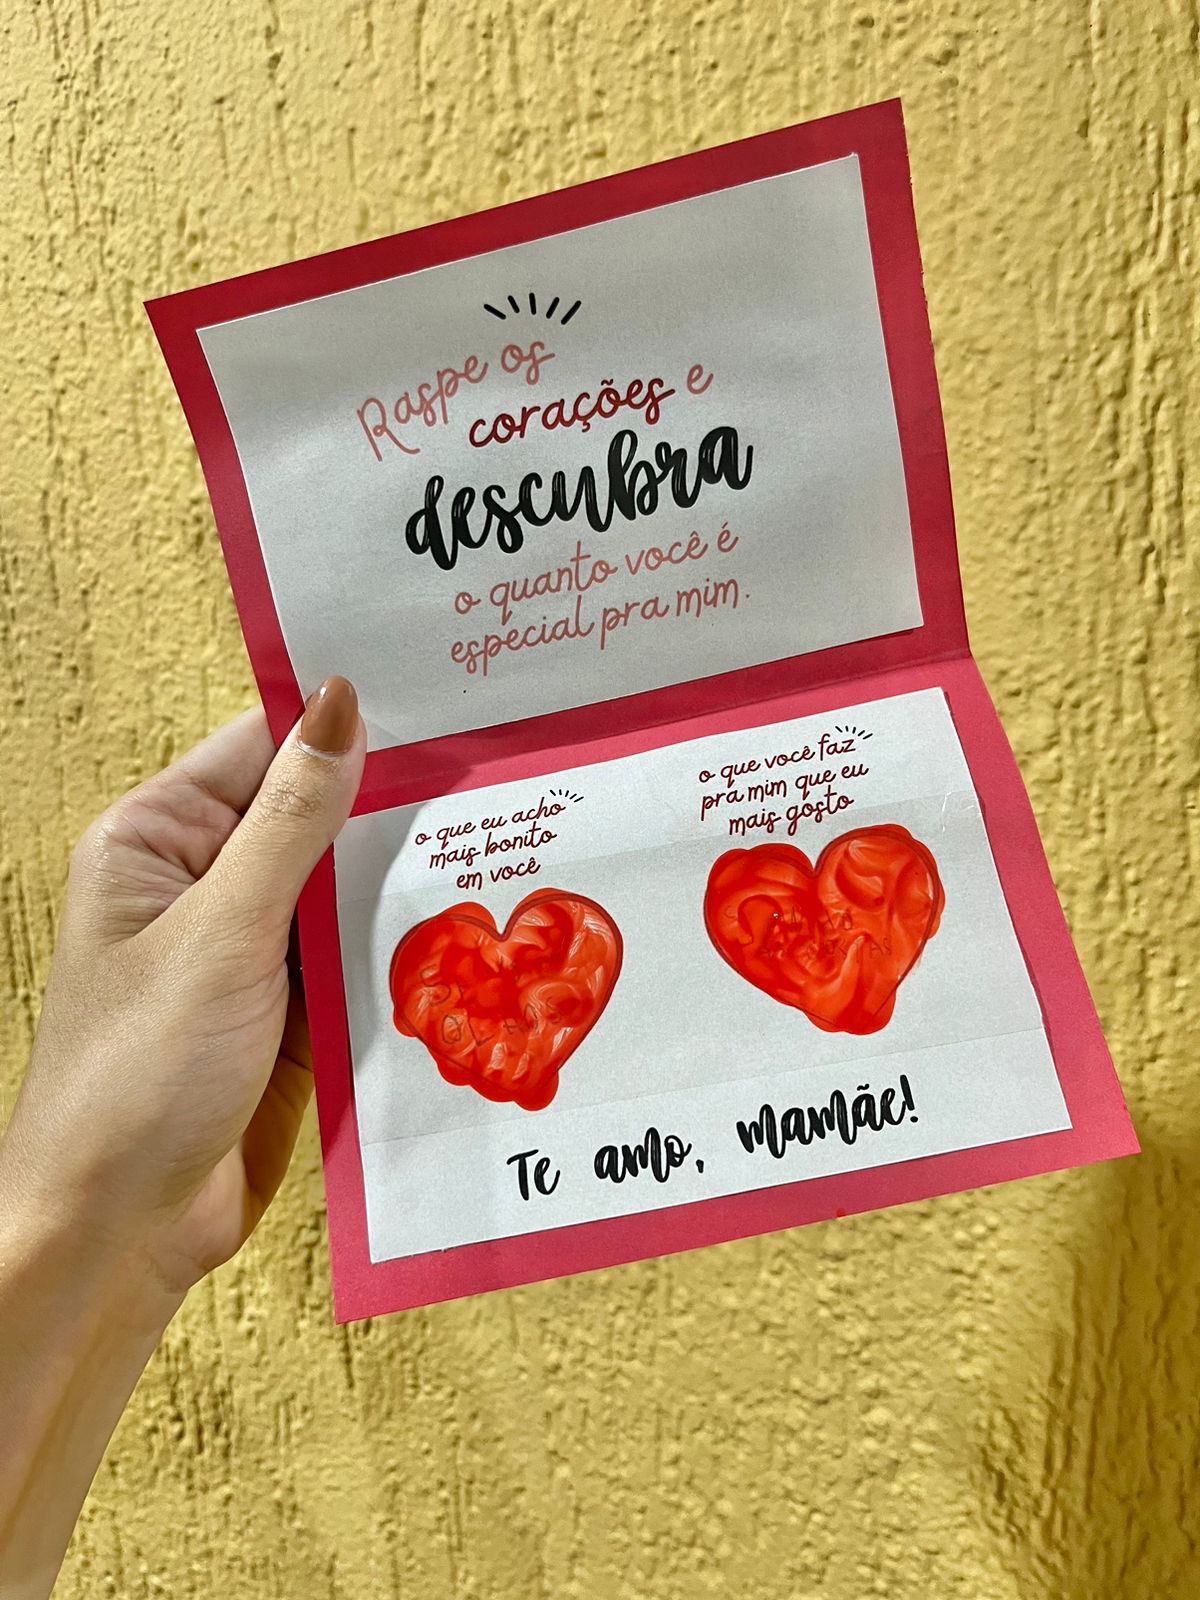 Raspe os
corações e
descubra
o quanto você é
especial pra mim.
o que eu acho
mais bonito
em você
o que você faz
pra mim que eu
mais gosto
OLHOS
Te amo, mamãe!